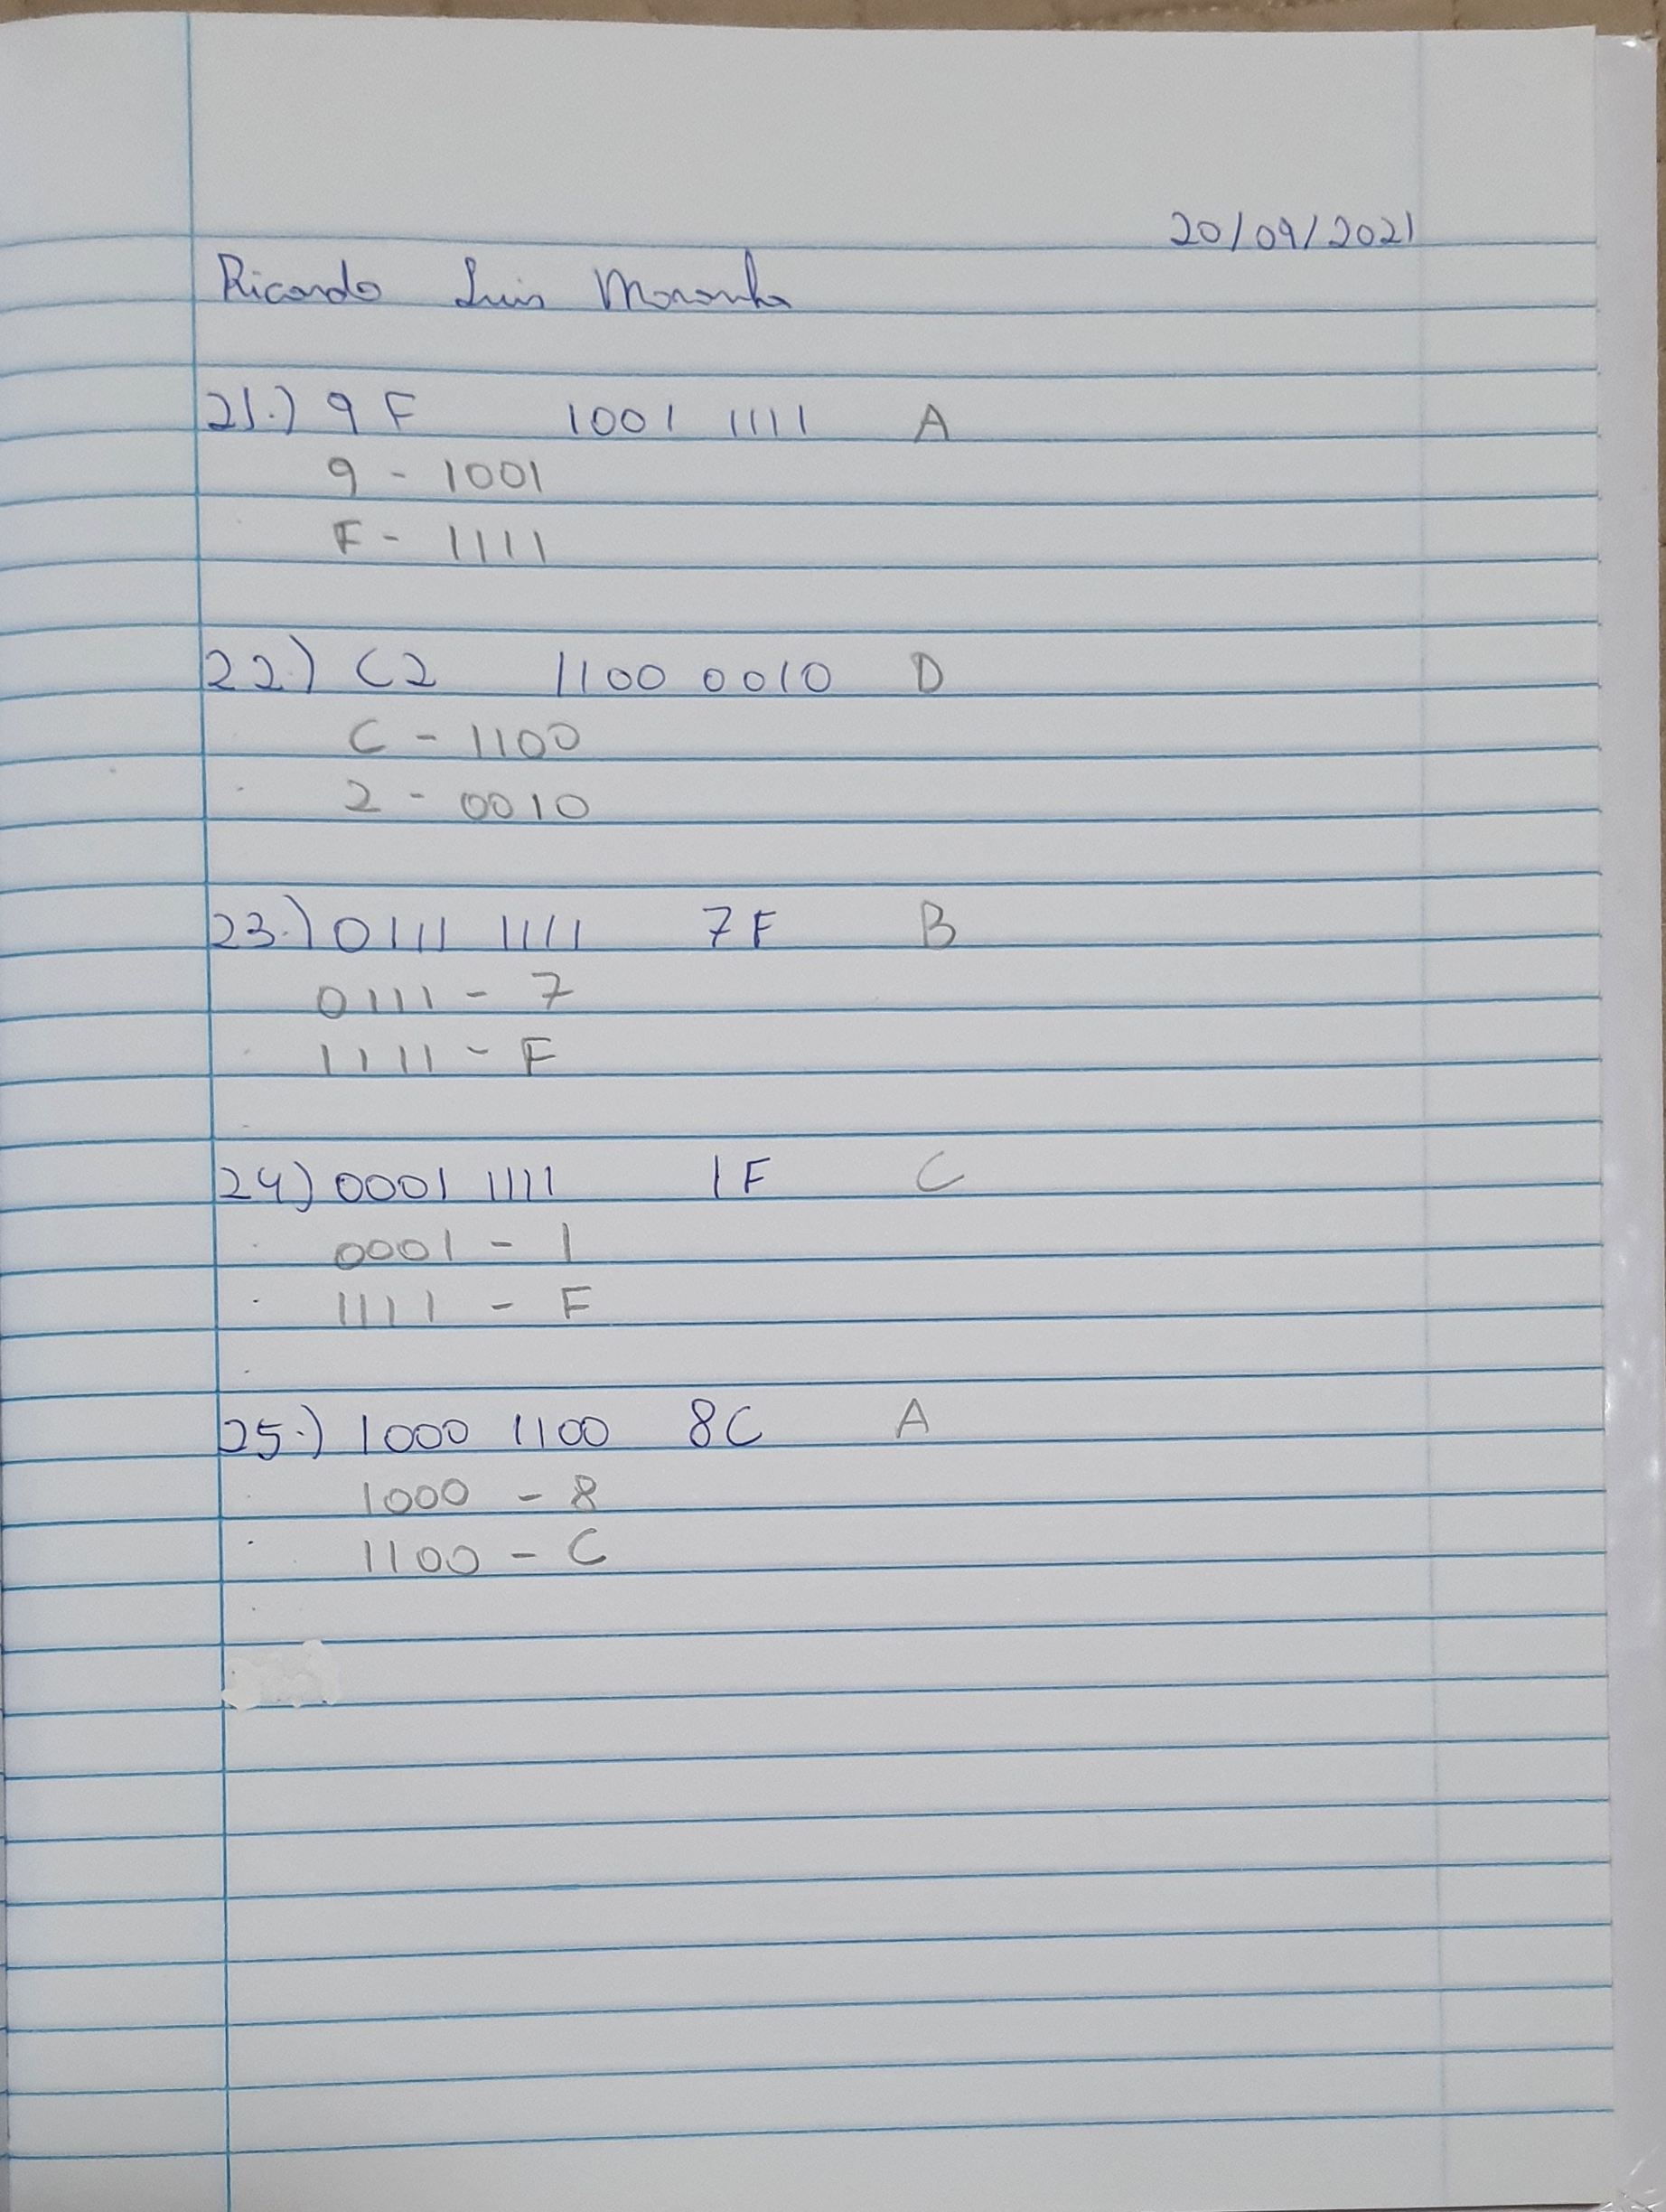 20/09/2021
Ricardo Luis
21.) 9F 1001 1111 A
9 - 1001
F - 1111
22.) C2 1100 0010 D
C - 1100
2 - 0010
23.) 0111 1111 7F B
0111 - 7
1111 - F
24) 0001 1111 1F C
0001 - 1
1111 - F
25.) 1000 1100 8C A
1000 - 8
1100 - C